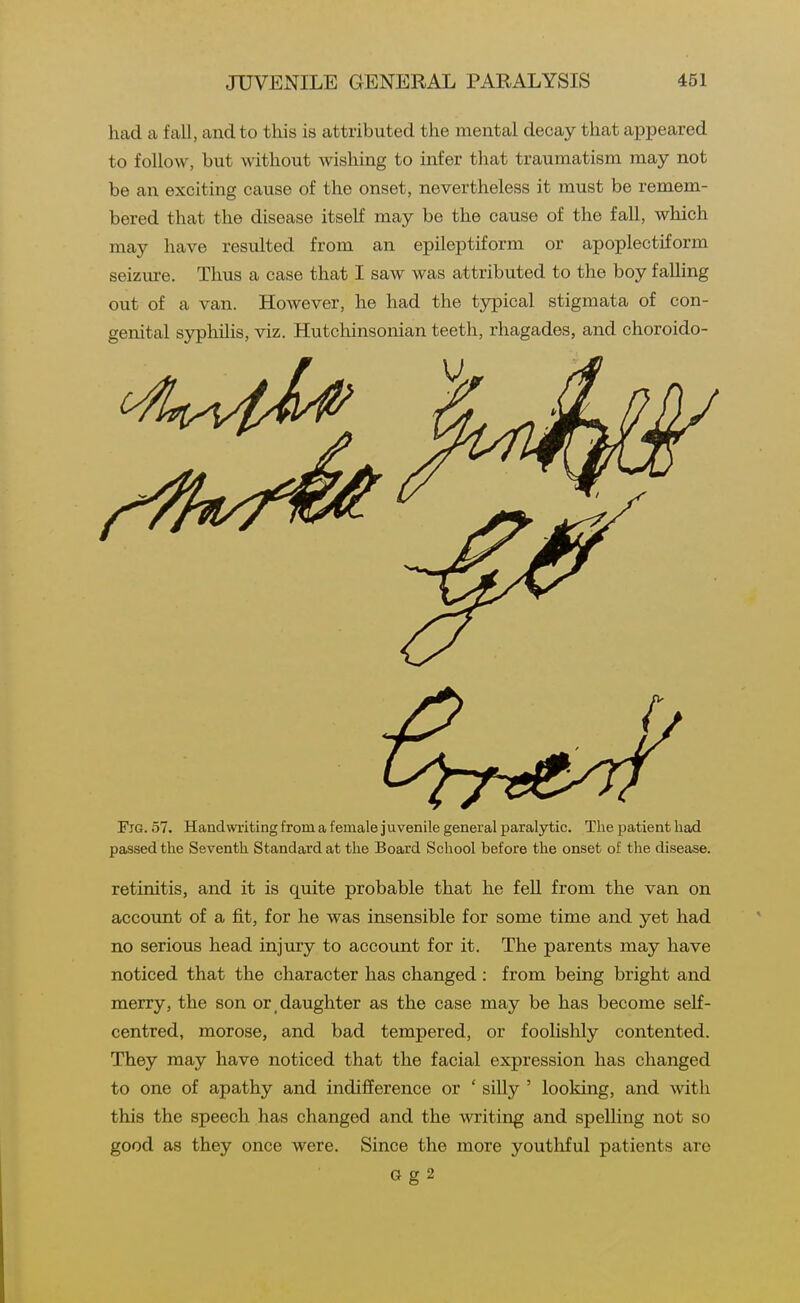 JUVENILE GENERAL PARALYSIS 451
had a fall, and to this is attributed the mental decay that appeared
to follow, but without wishing to infer that traumatism may not
be an exciting cause of the onset, nevertheless it must be remem-
bered that the disease itself may be the cause of the fall, which
may have resulted from an epileptiform or apoplectiform
seizure. Thus a case that I saw was attributed to the boy falling
out of a van. However, he had the typical stigmata of con-
genital syphilis, viz. Hutchinsonian teeth, rhagades, and choroido-
FIG. 57. Handwriting from a female juvenile general paralytic. The patient had
passed the Seventh Standard at the Board School before the onset of the disease.
retinitis, and it is quite probable that he fell from the van on
account of a fit, for he was insensible for some time and yet had
no serious head injury to account for it. The parents may have
noticed that the character has changed : from being bright and
merry, the son or daughter as the case may be has become self-
centred, morose, and bad tempered, or foolishly contented.
They may have noticed that the facial expression has changed
to one of apathy and indifference or ‘ silly ’ looking, and with
this the speech has changed and the writing and spelling not so
good as they once were. Since the more youthful patients are
G g 2